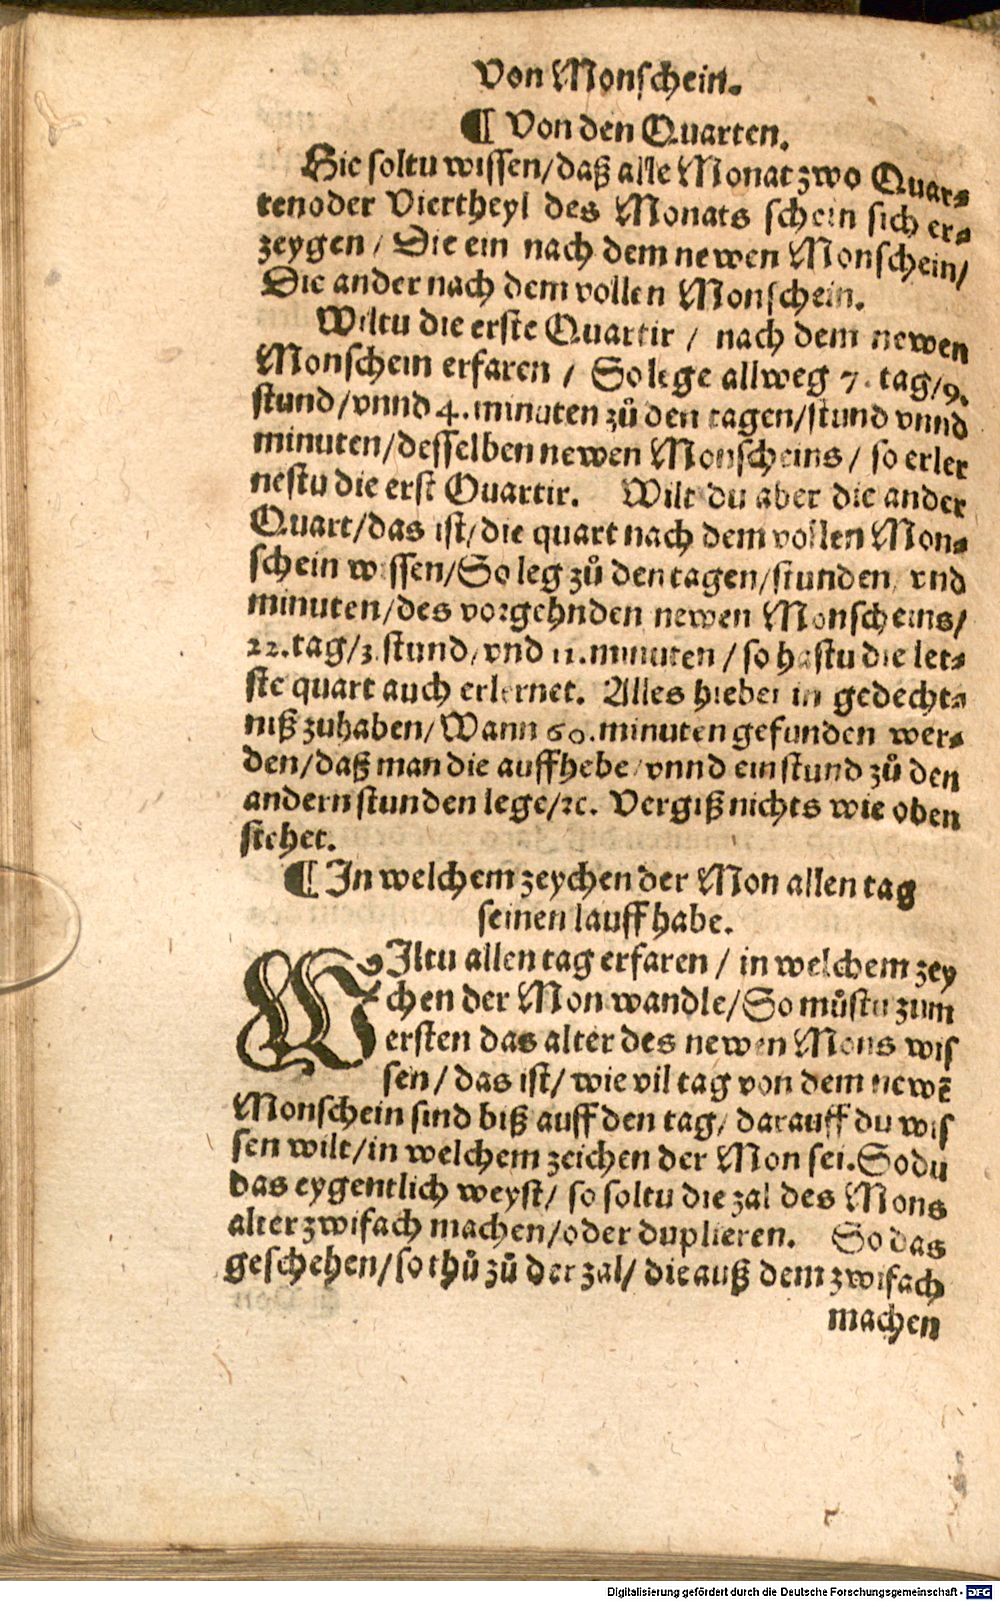 Von Monschein.
¶ Von den Quarten.
Hie soltu wissen/daß alle Monat zwo Quar-
ten oder Viertheyl des Monats schein sich er-
zeygen / Die ein nach dem newen Monschein/
Die ander nach dem vollen Monschein.
Wiltu die erste Quartir / nach dem newen
Monschein erfaren / So lege allweg 7. tag/9.
stund/vnnd 4. minuten zů den tagen/stund vnnd
minuten/desselben newen Monscheins / so erler
nestu die erst Quartir. Wilt du aber die ander
Quart/das ist/die quart nach dem vollen Mon-
schein wissen/So leg zů den tagen/stunden/ vnd
minuten/des vorgehnden newen Monscheins/
22.tag/3.stund/vnd 11.minuten / so hastu die let-
ste quart auch erlernet. Alles hiebei in gedecht-
niß zuhaben/Wann 60.minuten gefunden wer-
den/daß man die auffhebe/vnnd ein stund zů den
andern stunden lege/ꝛc. Vergiß nichts wie oben
stehet.
¶ In welchem zeychen der Mon allen tag
seinen lauff habe.
WIltu allen tag erfaren / in welchem zey
chen der Mon wandle/So můstu zum
ersten das alter des newen Mons wis
sen / das ist/ wie vil tag von dem newẽ
Monschein sind biß auff den tag/ darauff du wis
sen wilt/in welchem zeichen der Mon sei. So du
das eygentlich weyst/ so soltu die zal des Mons
alter zwifach machen/oder duplieren. So das
geschehen/so thů zů der zal/ die auß dem zwifach
machen
Digitalisierung gefördert durch die Deutsche Forschungsgemeinschaft - DFG